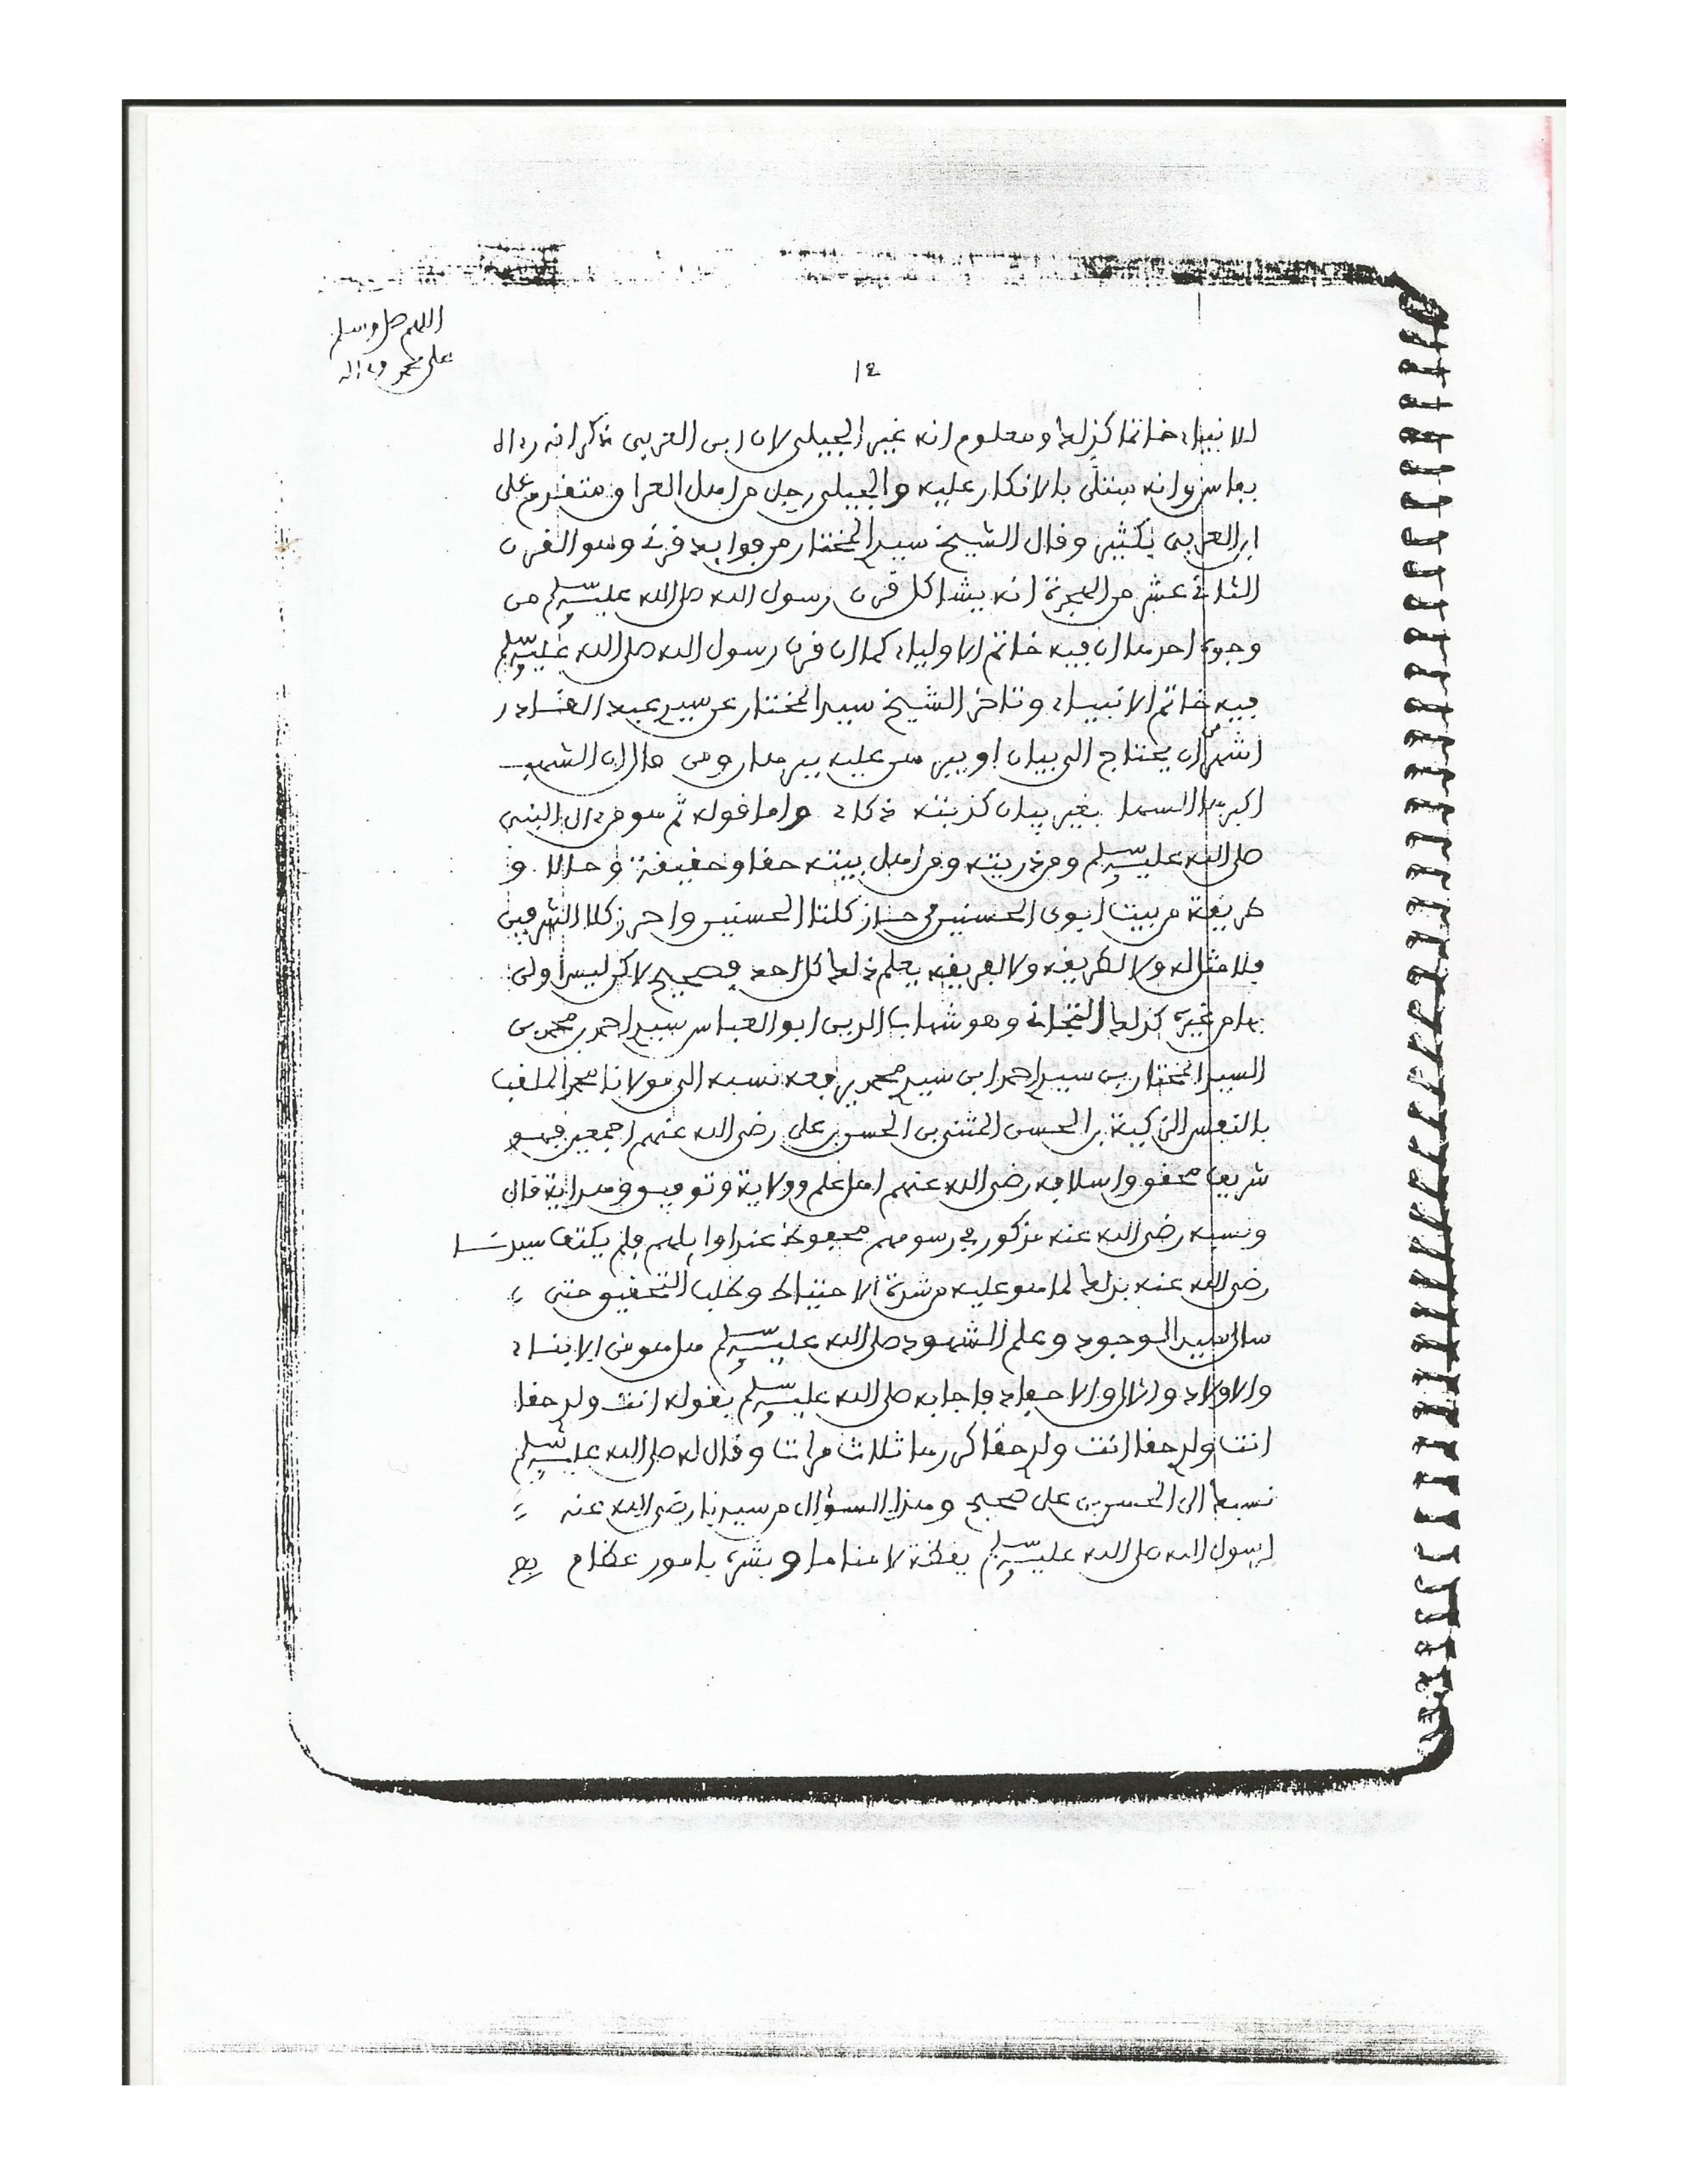 اللهم صل وسلم
على محمد وءاله
١٤
للانبياء خاتما كذلك ومعلوم انه غير الجيلي لان ابن العربي ذكر انه رءاه
بفاس وانه مبتلى بالانكار عليه والجيلي رجل من اهل العراق متقدم على
ابن العربي بكثير وقال الشيخ سيد المختار من فوايد قرني وهو القرن
الثاني عشر من الهجرة انه يشاكل قرن رسول الله صلى الله عليه وسلم من
وجوه احدها ان فيه خاتم الاولياء كما ان قرن رسول الله صلى الله عليه وسلم
فيه خاتم الانبياء وتاخر الشيخ سيد المختار عن سيد عبد القادر
اشهر من ان يحتاج الى بيان او يبرهن عليه ببرهان ومن قال ان الشهب
اكبرها السها بغير بيان كذبته ذكاء واما قوله ثم هو من ءال النبي
صلى الله عليه وسلم ومن ذريته ومن اهل بيته حقا وحقيقة وحالا و
طريقة من بيت ابوى الحسنين من حاز كلتا الحسنيين واحرز كلا الشرفين
فلا مثاله ولا لطريقه ولا لفريقه يعلم ذلك كل احد فصحيح لاكن ليس اولى
بها من غيره كذلك التجاني وهو شهاب الدين ابو العباس سيد احمد بن محمد بن
السيد المختار بن سيد احمد ابن سيد محمد يرفع نسبه الى مولانا محمد الملقب
بالنفس الزكية بن الحسن المثنى بن الحسن بن على رضي الله عنهم اجمعين فهو
شريف محقق واسلافه رضي الله عنهم اهل علم وولاية وتوفيق وهداية قال
ونسبه رضي الله عنه مذكور في رسومهم محفوظ عند اوايلهم فلم يكتف سيدنا
رضي الله عنه بذلك لما هو عليه من شدة الاحتياط وطلب التحقيق حتى
سال سيد الوجود وعلم الشهود صلى الله عليه وسلم هل هو من الابناء
والاولاد والال والاحفاد فاجابه صلى الله عليه وسلم بقوله انت ولد حقا
انت ولد حقا انت ولد حقا كررها ثلاث مرات وقال له صلى الله عليه وسلم
نسبك الى الحسن بن على صحيح وهذا السؤال من سيدنا رضي الله عنه
لرسول الله صلى الله عليه وسلم يقظة لا مناما وبشره بامور عظام